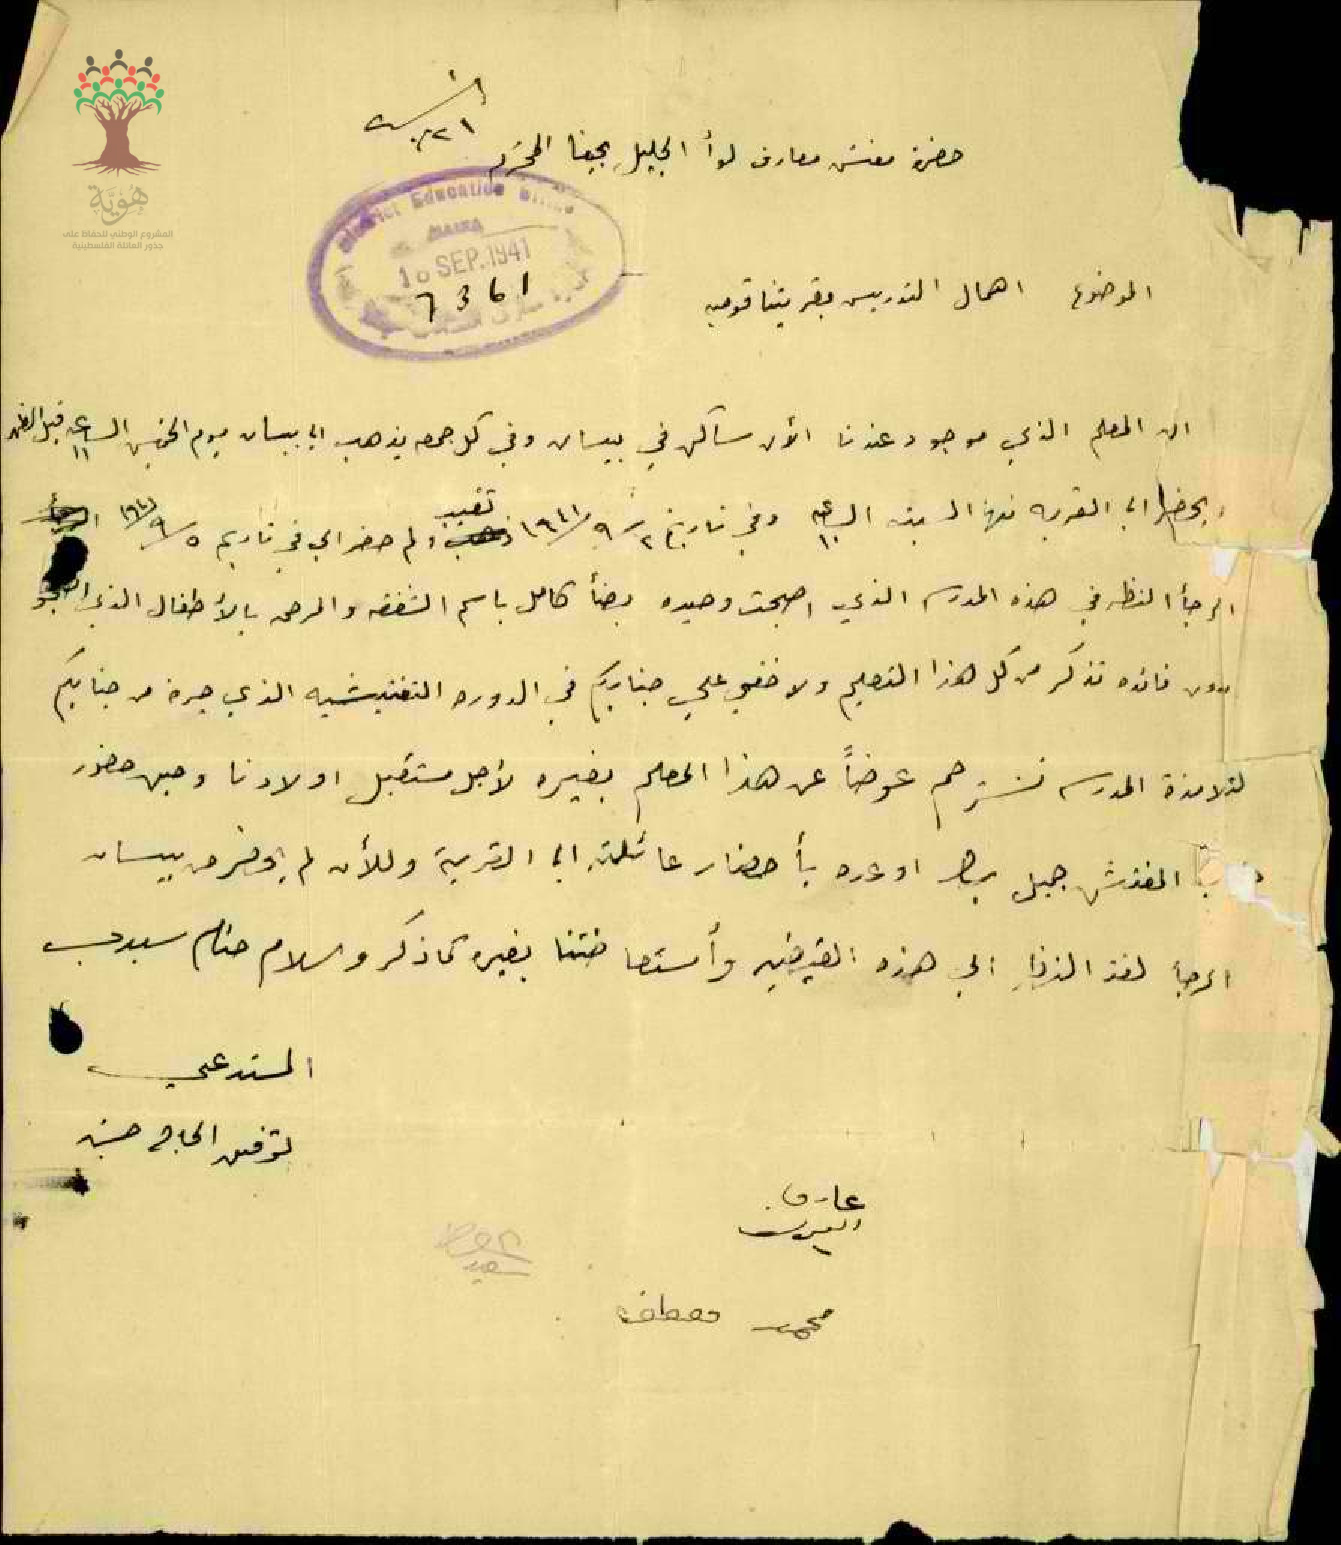 هُوِيَّة
المشروع الوطني للحفاظ على
جذور العائلة الفلسطينية
حضرة مفتش معارف لوأ الجليل بحيفا المحترم
District Education Office
HAIFA
10 SEP. 1941
7361
الموضوع اهمال التدريس بقريتنا قوميه
ان المعلم الذي موجود عندنا الأن ساكن في بيسان وفي كل جمعه يذهب الى بيسان يوم الخميس الساعه ١١ قبل الظهر
ويحضر الى القريه نهار السبت الساعه ١٠ وفي تاريخ ٢/٩/١٩٤١ تغيب ولم حضر الى في تاريخ ٥/٩/١٩٤١
الرجأ النظر في هذه المدرسه الذي اصبحت وحيده بضأ كامل باسم الشفقه والرحمه بالأطفال الذي
بدون فائده تذكر من كل هذا التعليم ولا خفي على جنابكم في الدوره التفتيشيه الذي جرة من جنابكم
لتلامذة المدرسه نسترحم عوضاً عن هذا المعلم بغيره لأجل مستقبل اولادنا وحين حضور
المفتش جميل اوعده بأحضار عائلته الى القرية وللأن لم يحضر من بيسان
الرجأ لفة النظر الى هذه القضيه وأستعاضتنا بغيره كما ذكر والسلام ختام سيدي
المستدعي
توفيق الحاج حسين
عارف
محمد مصطفى
سعيد